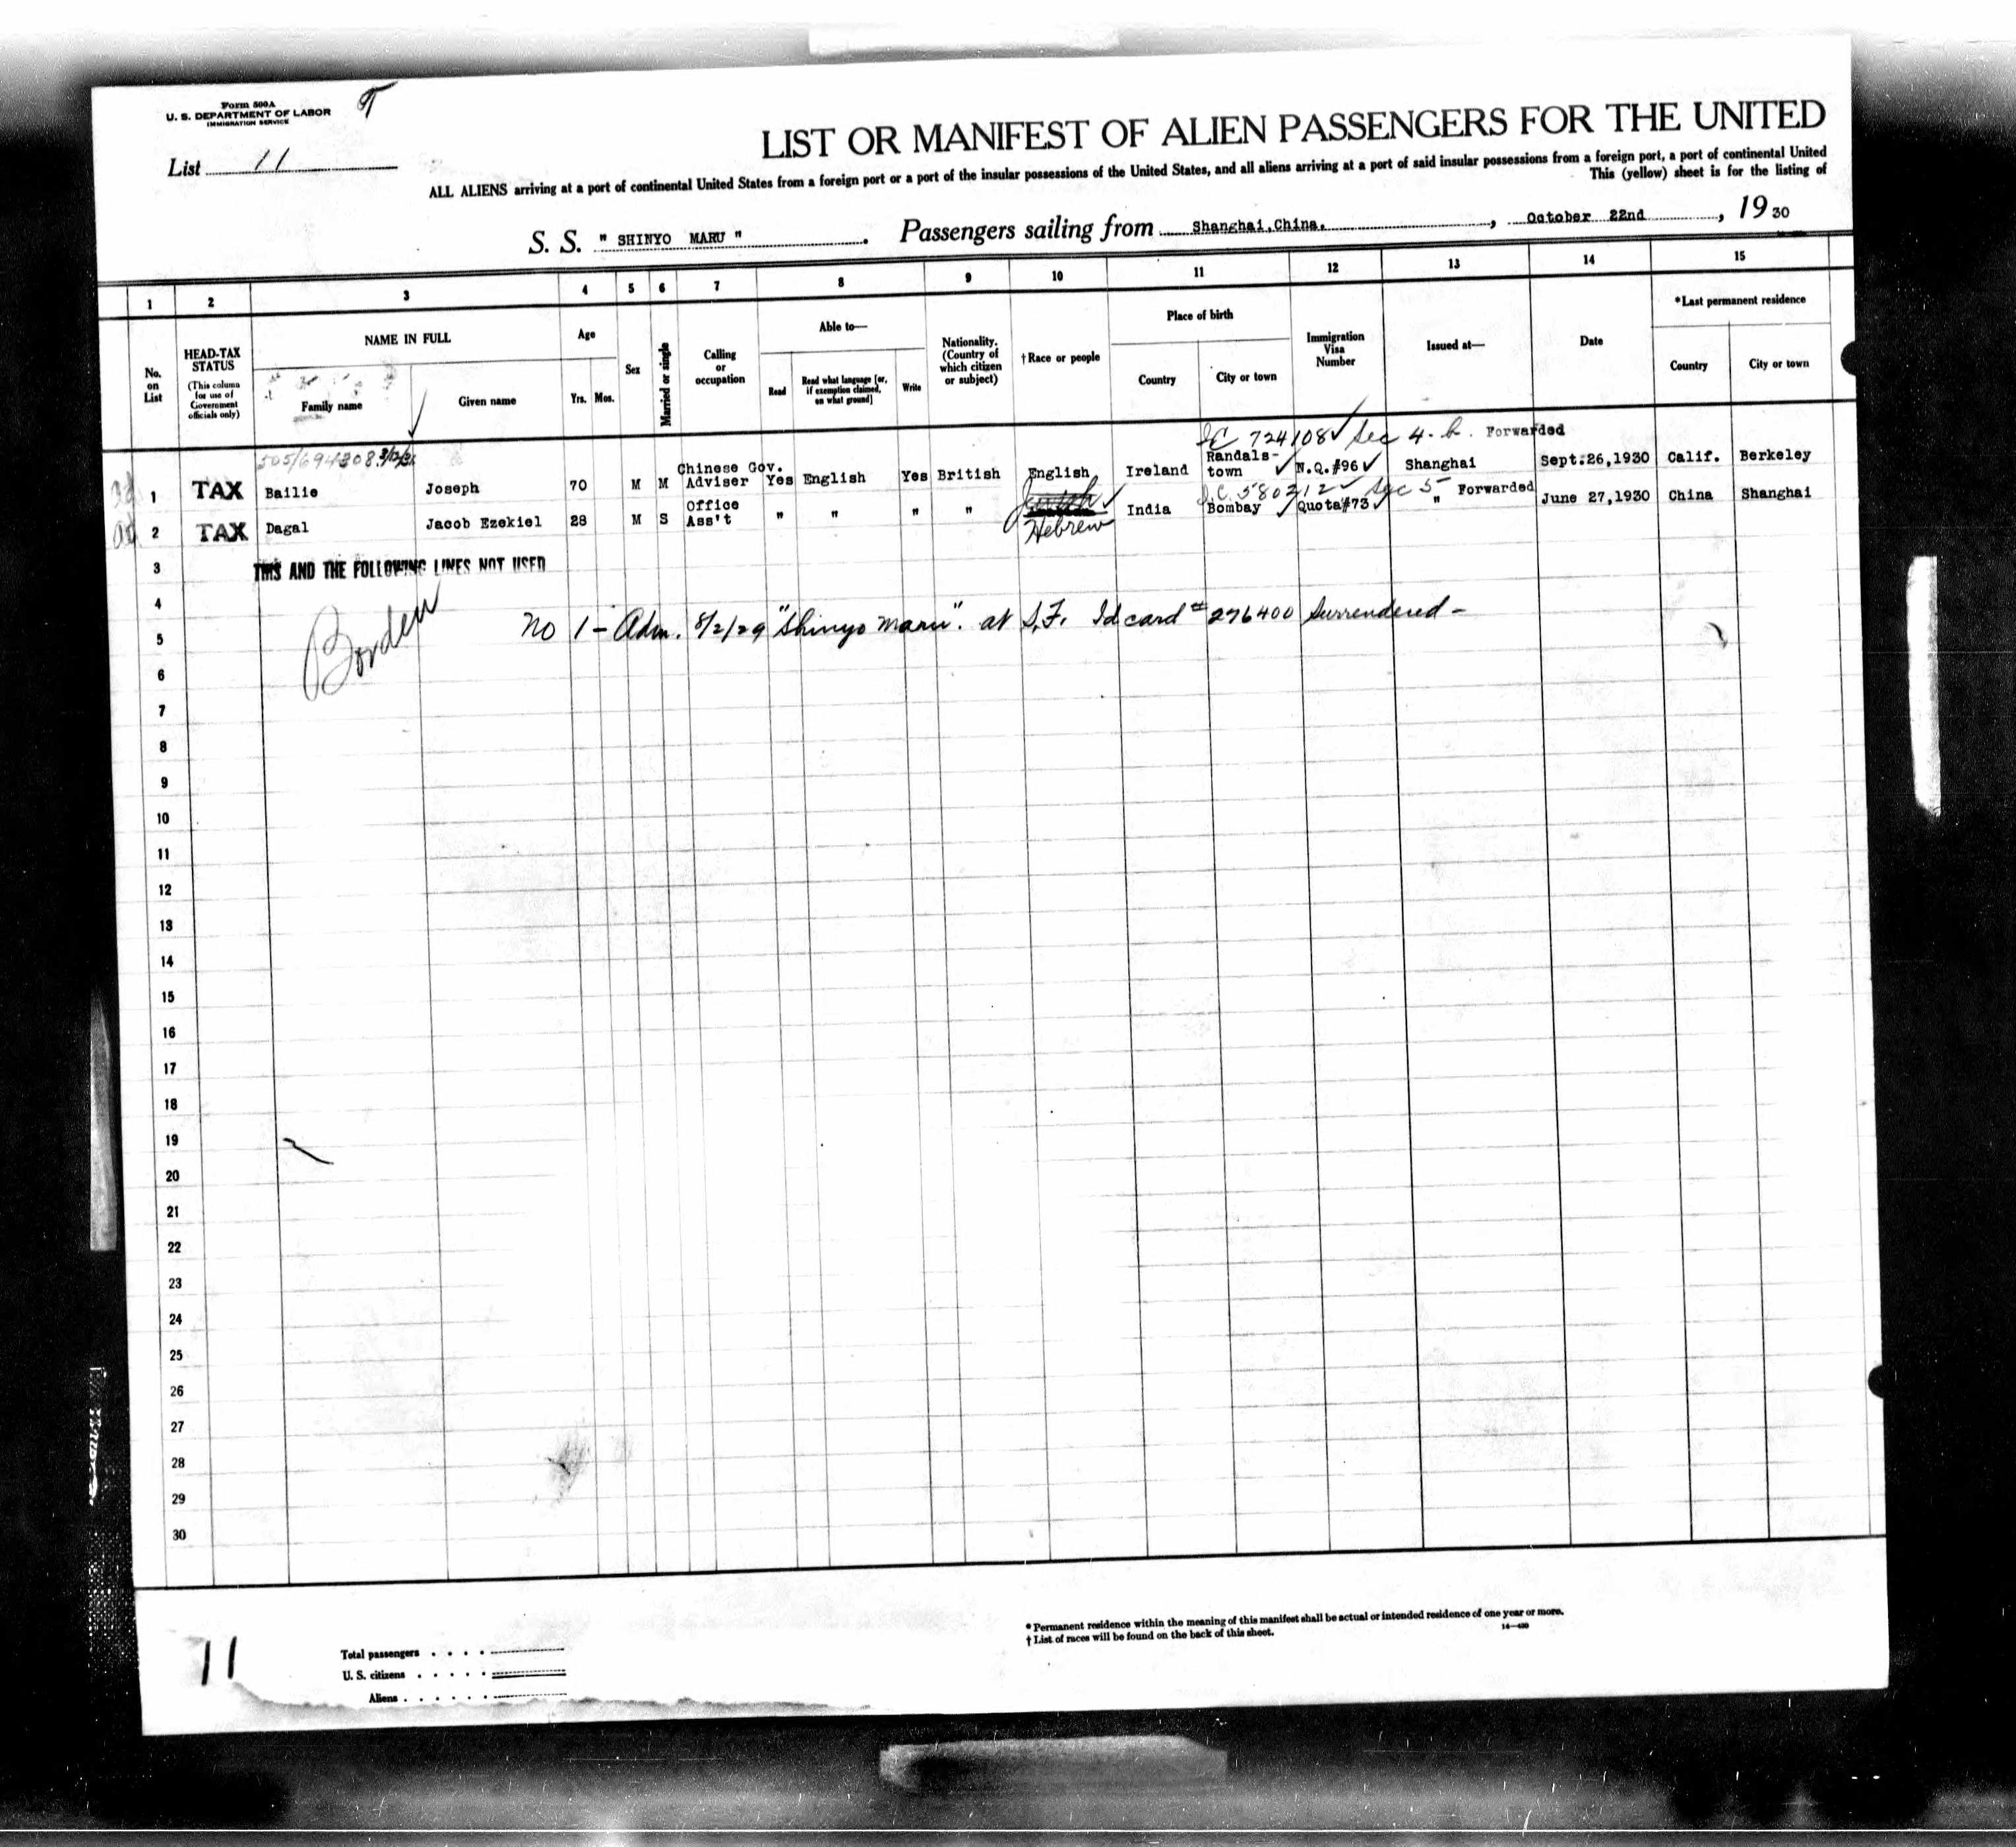 Form 500A
U. S. DEPARTMENT OF LABOR
IMMIGRATION SERVICE
List 11
LIST OR MANIFEST OF ALIEN PASSENGERS FOR THE UNITED
ALL ALIENS arriving at a port of continental United States from a foreign port or a port of the insular possessions of the United States, and all aliens arriving at a port of said insular possessions from a foreign port, a port of continental United
This (yellow) sheet is for the listing of
S. S. " SHINYO MARU ". Passengers sailing from Shanghai,China. , October 22nd , 19 30
1 2 3 4 5 6 7 8 9 10 11 12 13 14 15
No. on List
HEAD-TAX STATUS (This column for use of Government officials only)
NAME IN FULL
Family name
Given name
Age
Yrs. Mos.
Sex
Married or single
Calling or occupation
Able to—
Read
Read what language [or, if exemption claimed, on what ground]
Write
Nationality. (Country of which citizen or subject)
†Race or people
Place of birth
Country
City or town
Immigration Visa Number
Issued at—
Date
*Last permanent residence
Country
City or town
724108 Sec 4. b. Forwarded
1 TAX Bailie Joseph 70 M M Chinese Gov. Adviser Yes English Yes British English Ireland Randals-town N.Q.#96 Shanghai Sept.26,1930 Calif. Berkeley
580212 Sec 5 Forwarded
2 TAX Dagal Jacob Ezekiel 28 M S Office Ass't " " " " Hebrew India Bombay Quota#73 " June 27,1930 China Shanghai
3 THIS AND THE FOLLOWING LINES NOT USED
4
Borden
5 No 1 - Adm. 8/2/29 "Shinyo Maru". at S.F. Id card # 276400 Surrendered -
6
7
8
9
10
11
12
13
14
15
16
17
18
19
20
21
22
23
24
25
26
27
28
29
30
11
Total passengers . . . .
U. S. citizens . . . . .
Aliens . . . . . .
* Permanent residence within the meaning of this manifest shall be actual or intended residence of one year or more.
† List of races will be found on the back of this sheet.